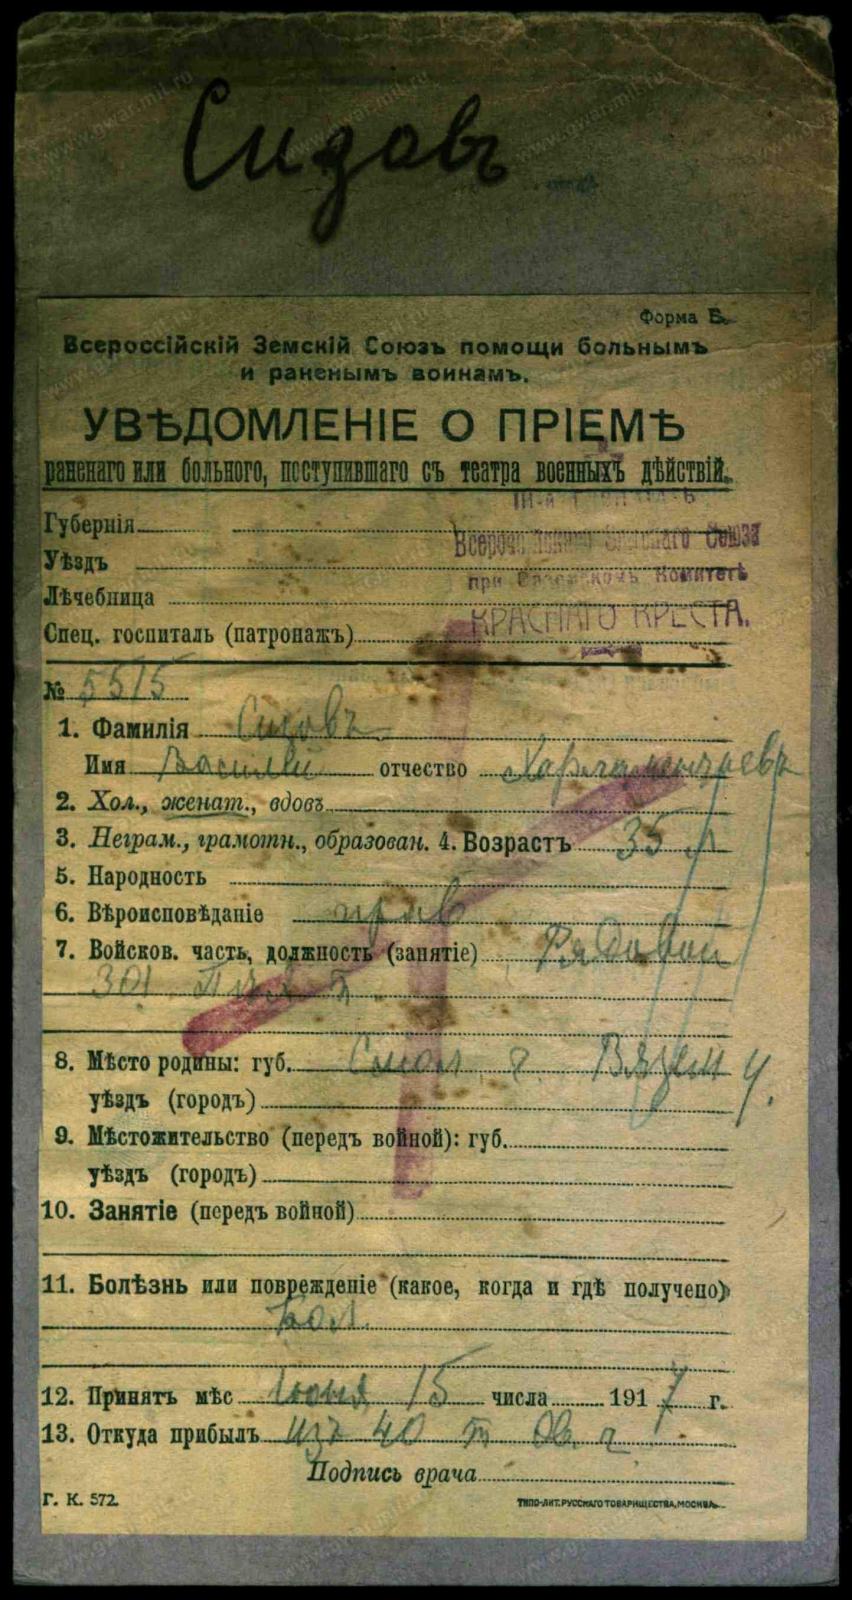 Сизовъ
Форма Б.
Всероссійскій Земскій Союзъ помощи больнымъ
и раненымъ воинамъ.
УВѢДОМЛЕНІЕ О ПРІЕМѢ
раненаго или больного, поступившаго съ театра военныхъ дѣйствій.
Губернія
Уѣздъ
Лѣчебница
Спец. госпиталь (патронажъ)
Союза
при Комитетѣ
КРАСНАГО КРЕСТА.
№ 5515
1. Фамилія Сизовъ
Имя Василій отчество Харлампіевъ
2. Хол., женат., вдовъ
3. Неграм., грамотн., образован. 4. Возрастъ 35 л
5. Народность
6. Вѣроисповѣданіе прав
7. Войсков. часть, должность (занятіе) Рядовой
301
8. Мѣсто родины: губ. Смол. г. Вязем у.
уѣздъ (городъ)
9. Мѣстожительство (передъ войной): губ.
уѣздъ (городъ)
10. Занятіе (передъ войной)
11. Болѣзнь или поврежденіе (какое, когда и гдѣ получено)
бол.
12. Принятъ мѣс Іюня 15 числа 1917 г.
13. Откуда прибылъ изъ 40
Подпись врача
Г. К. 572.
ТИПО-ЛИТ. РУССКАГО ТОВАРИЩЕСТВА, МОСКВА
www.gwar.mil.ru